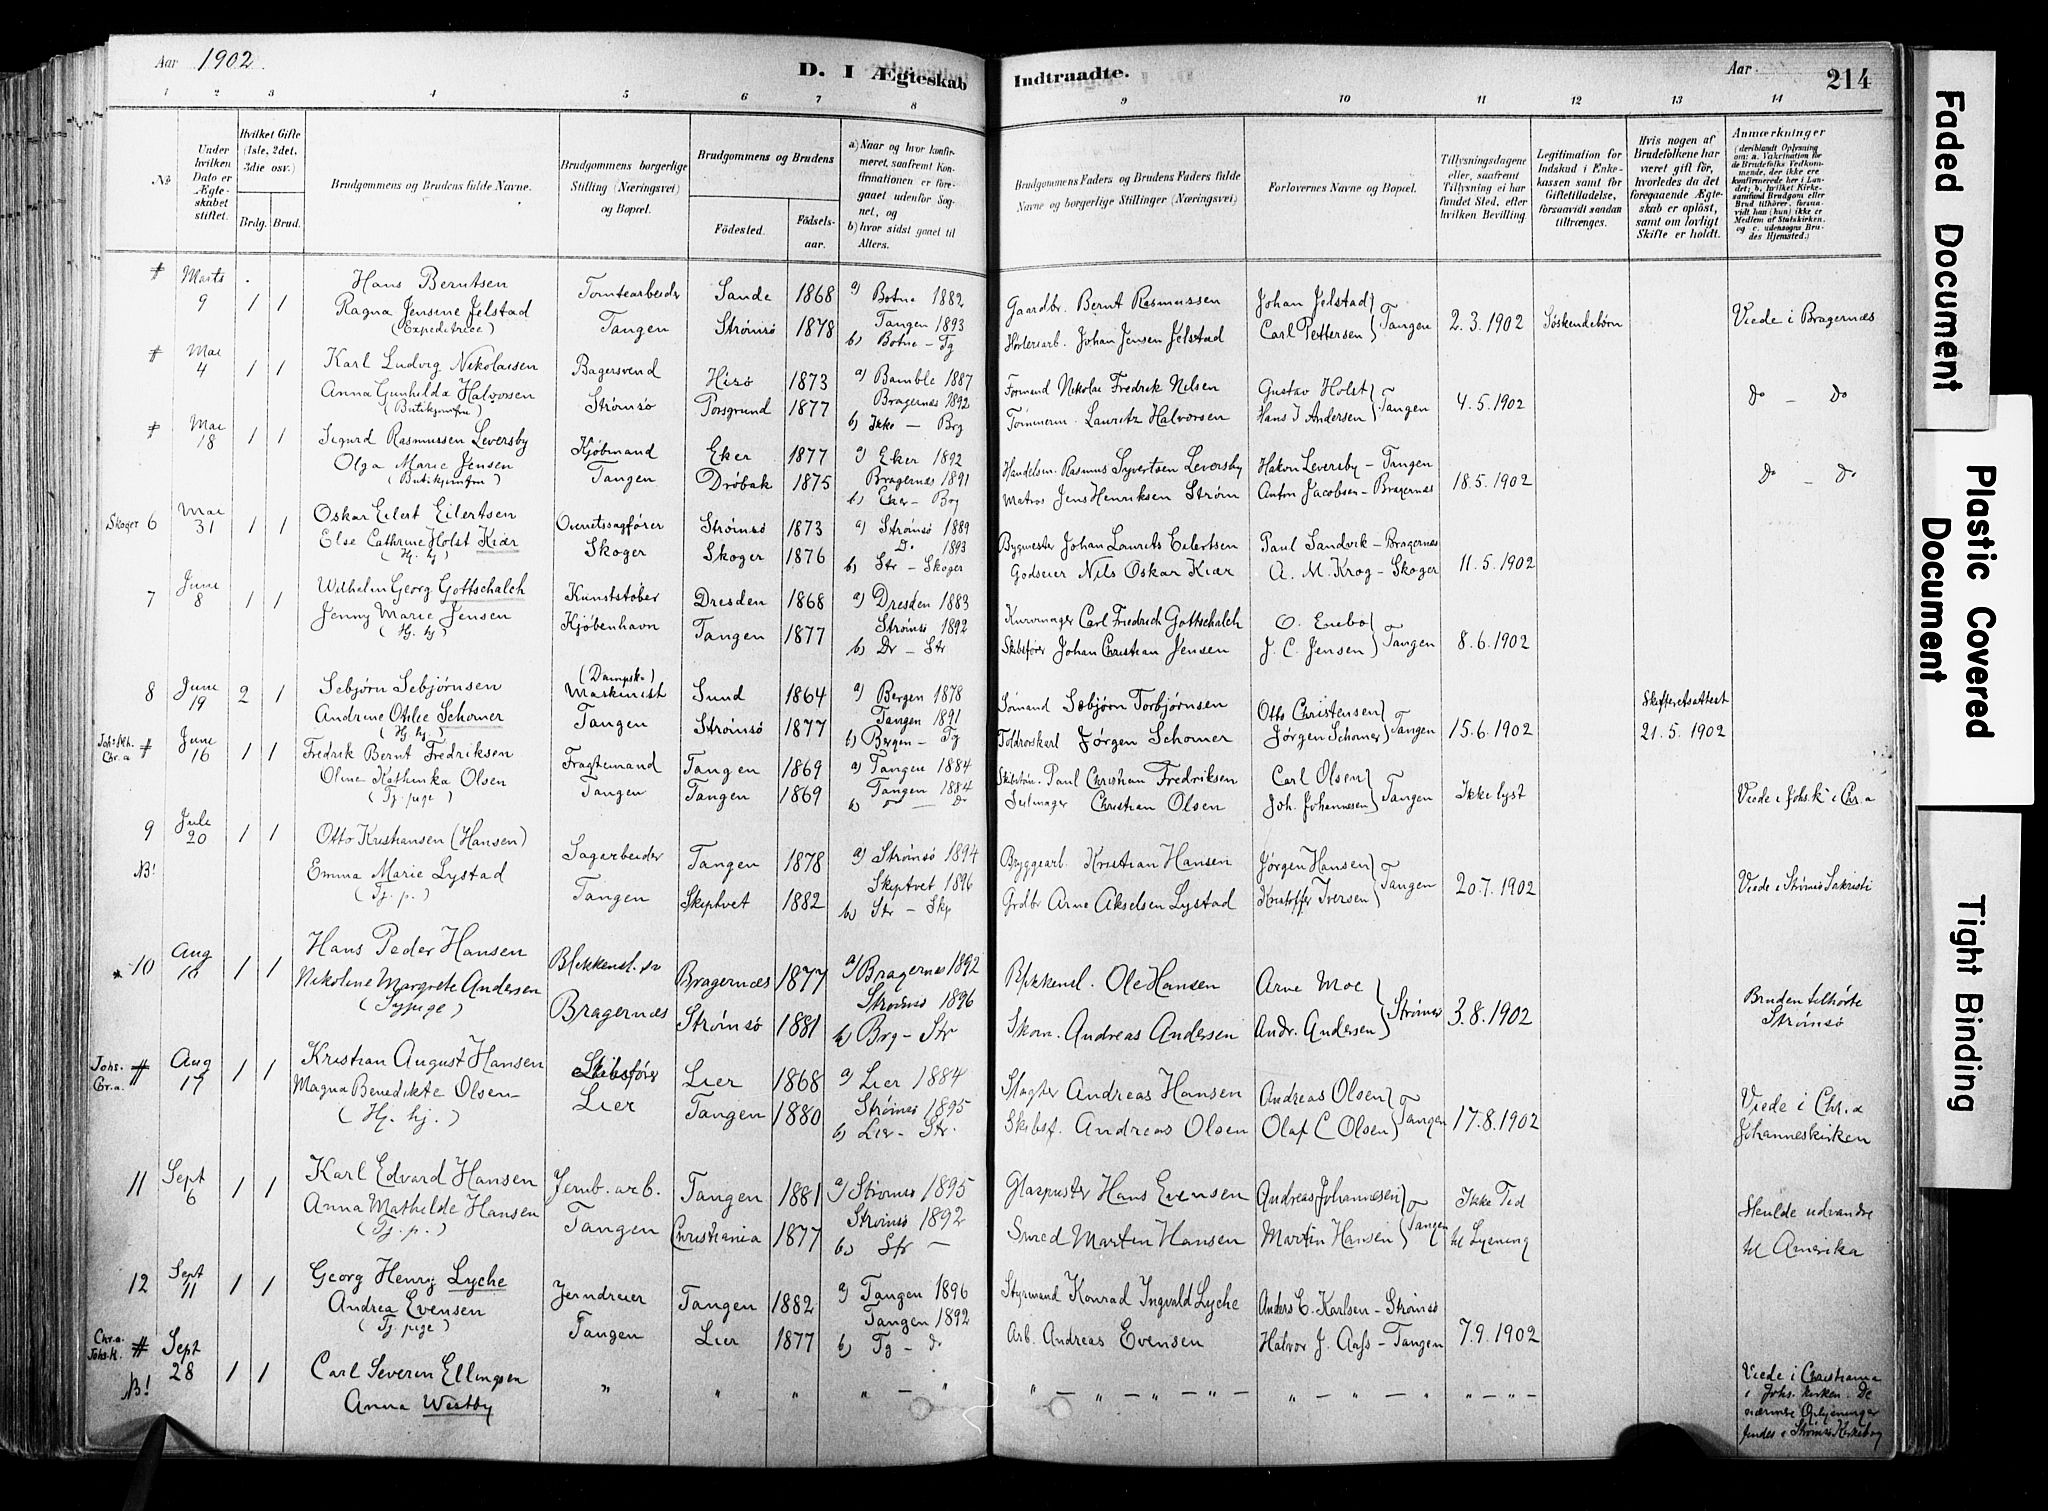 Aar 1902.
D. I Ægteskab Indtraadte.
Aar
214
1 2 3 4 5 6 7 8 9 10 11 12 13 14
No
Under hvilken Dato er Ægteskabet stiftet.
Hvilket Gifte (1ste, 2det, 3die osv.)
Brdg. Brud.
Brudgommens og Brudens fulde Navne.
Brudgommens borgerlige Stilling (Næringsvei) og Bopæl.
Brudgommens og Brudens
Fødested.
Fødselsaar.
a) Naar og hvor konfirmeret, saafremt Konfirmationen er foregaaet udenfor Sognet, og
b) hvor sidst gaaet til Alters.
Brudgommens Faders og Brudens Faders fulde Navne og borgerlige Stillinger (Næringsvei)
Forlovernes Navne og Bopæl.
Tillysningsdagene eller, saafremt Tillysning ei har fundet Sted, efter hvilken Bevilling.
Legitimation for Indskud i Enkekassen samt for Giftetilladelse, forsaavidt saadan tiltrænges.
Hvis nogen af Brudefolkene har været gift før, hvorledes da det foregaaende Ægteskab er opløst, samt om lovligt Skifte er holdt.
Anmærkninger
(deriblandt Oplysning om: a. Vakcination for de Brudefolks Vedkommende, der ikke ere konfirmerede her i Landet; b. hvilket Kirkesamfund Brudgom eller Brud tilhører, forsaavidt han (hun) ikke er Medlem af Statskirken, og c. udensogns Brudes Hjemsted.)
# Marts 9 1 1 Hans Berntsen Tomtearbeider Sande 1868 a) Botne 1882 Gaardbr. Bernt Rasmussen Johan Jelstad
Ragna Jensine Jelstad (Expeditrice) Tangen Strømsø 1878 Tangen 1893 b) Botne - Tg Johan Jensen Jelstad Carl Pettersen } Tangen 2.3.1902 Søskendebørn Viede i Bragernæs
# Mai 4 1 1 Karl Ludvig Nikolaisen Bagersvend Hisø 1873 a) Bamble 1887 Formand Nikolai Fredrik Nilsen Gustav Holst
Anna Gunhilda Halvorsen (Butikjomfru) Strømsø Porsgrund 1877 Bragernæs 1892 b) Ikke - Brg Tømmerm. Lauritz Halvorsen Hans J Andersen } Tangen 4.5.1902 do - do
# Mai 18 1 1 Sigurd Rasmussen Leversby Kjøbmand Eker 1877 a) Eker 1892 Handelsm. Rasmus Syvertsen Leversby Hakon Leversby - Tangen
Olga Marie Jensen (Butikjomfru) Tangen Drøbak 1875 Bragernæs 1891 b) Eker - Brg Matros Jens Henriksen Strøm Anton Jacobsen - Bragernæs 18.5.1902 do - do
Skoger 6 Mai 31 1 1 Oskar Eilert Eilertsen Overretssagfører Strømsø 1873 a) Strømsø 1889 Bygmester Johan Laurits Eilertsen Paul Sandvik - Bragernæs
Else Cathrine Holst Kiær (Hj. hj) Skoger Skoger 1876 Do 1893 b) Str - Skoger Godseier Nils Oskar Kiær A. M. Krog - Skoger 11.5.1902
7 June 8 1 1 Wilhelm Georg Gottschalch Kunststøber Dresden 1868 a) Dresden 1883 Kurvmager Carl Fredrich Gottschalch O. Enebo
Jenny Marie Jensen (Hj. hj) Kjøbenhavn Tangen 1877 Strømsø 1892 b) Dr - Str Skibsfører Johan Christian Jensen J. C. Jensen } Tangen 8.6.1902
8 June 19 2 1 Sebjørn Sebjørnsen (Dampsk.) Maskinist Sund 1864 a) Bergen 1878 Sømand Sebjørn Torbjørnsen Otto Christensen Skifteretsattest
Andrine Otilie Schomer (Hj hj.) Tangen Strømsø 1877 Tangen 1891 b) Bergen - Tg Toldrorskarl Jørgen Schomer Jørgen Schomer } Tangen 15.6.1902 21.5.1902
Chr.a # June 16 1 1 Fredrik Bernt Fredriksen Fragtemand Tangen 1869 a) Tangen 1884 Paul Christian Fredriksen Carl Olsen
Oline Kathinka Olsen (Tj. pige) Tangen Tangen 1869 Tangen 1884 b) do Seilmager Christian Olsen Joh. Johannesen } Tangen Ikke lyst Viede i Johs.k i Chr.a
9 Juli 20 1 1 Otto Kristiansen (Hansen) Sagarbeider Tangen 1878 a) Strømsø 1894 Bryggearb. Kristian Hansen Jørgen Hansen
NB! Emma Marie Lystad (Tj. p.) Tangen Skiptvet 1882 Skiptvet 1896 b) Str - Skip Grdbr Arne Akselsen Lystad Kristoffer Iversen } Tangen 20.7.1902 Viede i Strømsø Sakristi
10 Aug 1 1 Hans Peder Hansen Blikkensl. sv Bragernæs 1877 a) Bragernæs 1892 Blikkensl. Ole Hansen Arne Moe
Nikoline Margrete Andersen (Sypige) Bragernæs Strømsø 1881 Strømsø 1896 b) Brg - Str Skom. Andreas Andersen Andr. Andersen } Strømsø 3.8.1902 Bruden tilhørte Strømsø
Johs. Chr.a. # Aug 17 1 1 Kristian August Hansen Skibsfører Lier 1868 a) Lier 1884 Slagter Andreas Hansen Andreas Olsen
Magna Benedikte Olsen (Hj. hj.) Lier Tangen 1880 Strømsø 1895 b) Lier - Str. Skibsf. Andreas Olsen Olaf C Olsen } Tangen 17.8.1902 Viede i Chr.a Johanneskirken
11 Sept 6 1 1 Karl Edvard Hansen Jernb. arb. Tangen 1881 a) Strømsø 1895 Glaspuster Hans Evensen Andreas Johannesen Ikke Tid
Anna Mathilde Hansen (Tj. p.) Tangen Christiania 1877 Strømsø 1892 b) Str - Smed Martin Hansen Martin Hansen } Tangen til Lysning Skulde udvandre til Amerika
12 Sept 11 1 1 Georg Henry Lyche Jerndreier Tangen 1882 a) Tangen 1896 Styrmand Konrad Ingvald Lyche Anders E. Karlsen - Strømsø
Andrea Evensen (Tj. pige) Tangen Lier 1877 Tangen 1892 b) Tg - do Arb. Andreas Evensen Halvor J. Aass - Tangen 7.9.1902
Chr.a. Johs.K. # Sept 28 1 1 Carl Severin Ellingsen " " " " - " " - " - " - " - " - " - " - " - Viede i Christiania
NB! Anna Westby i Johs. kirken. De nærmere Oplysninger findes i Strømsø Kirkebog
Faded Document
Plastic Covered Document
Tight Binding